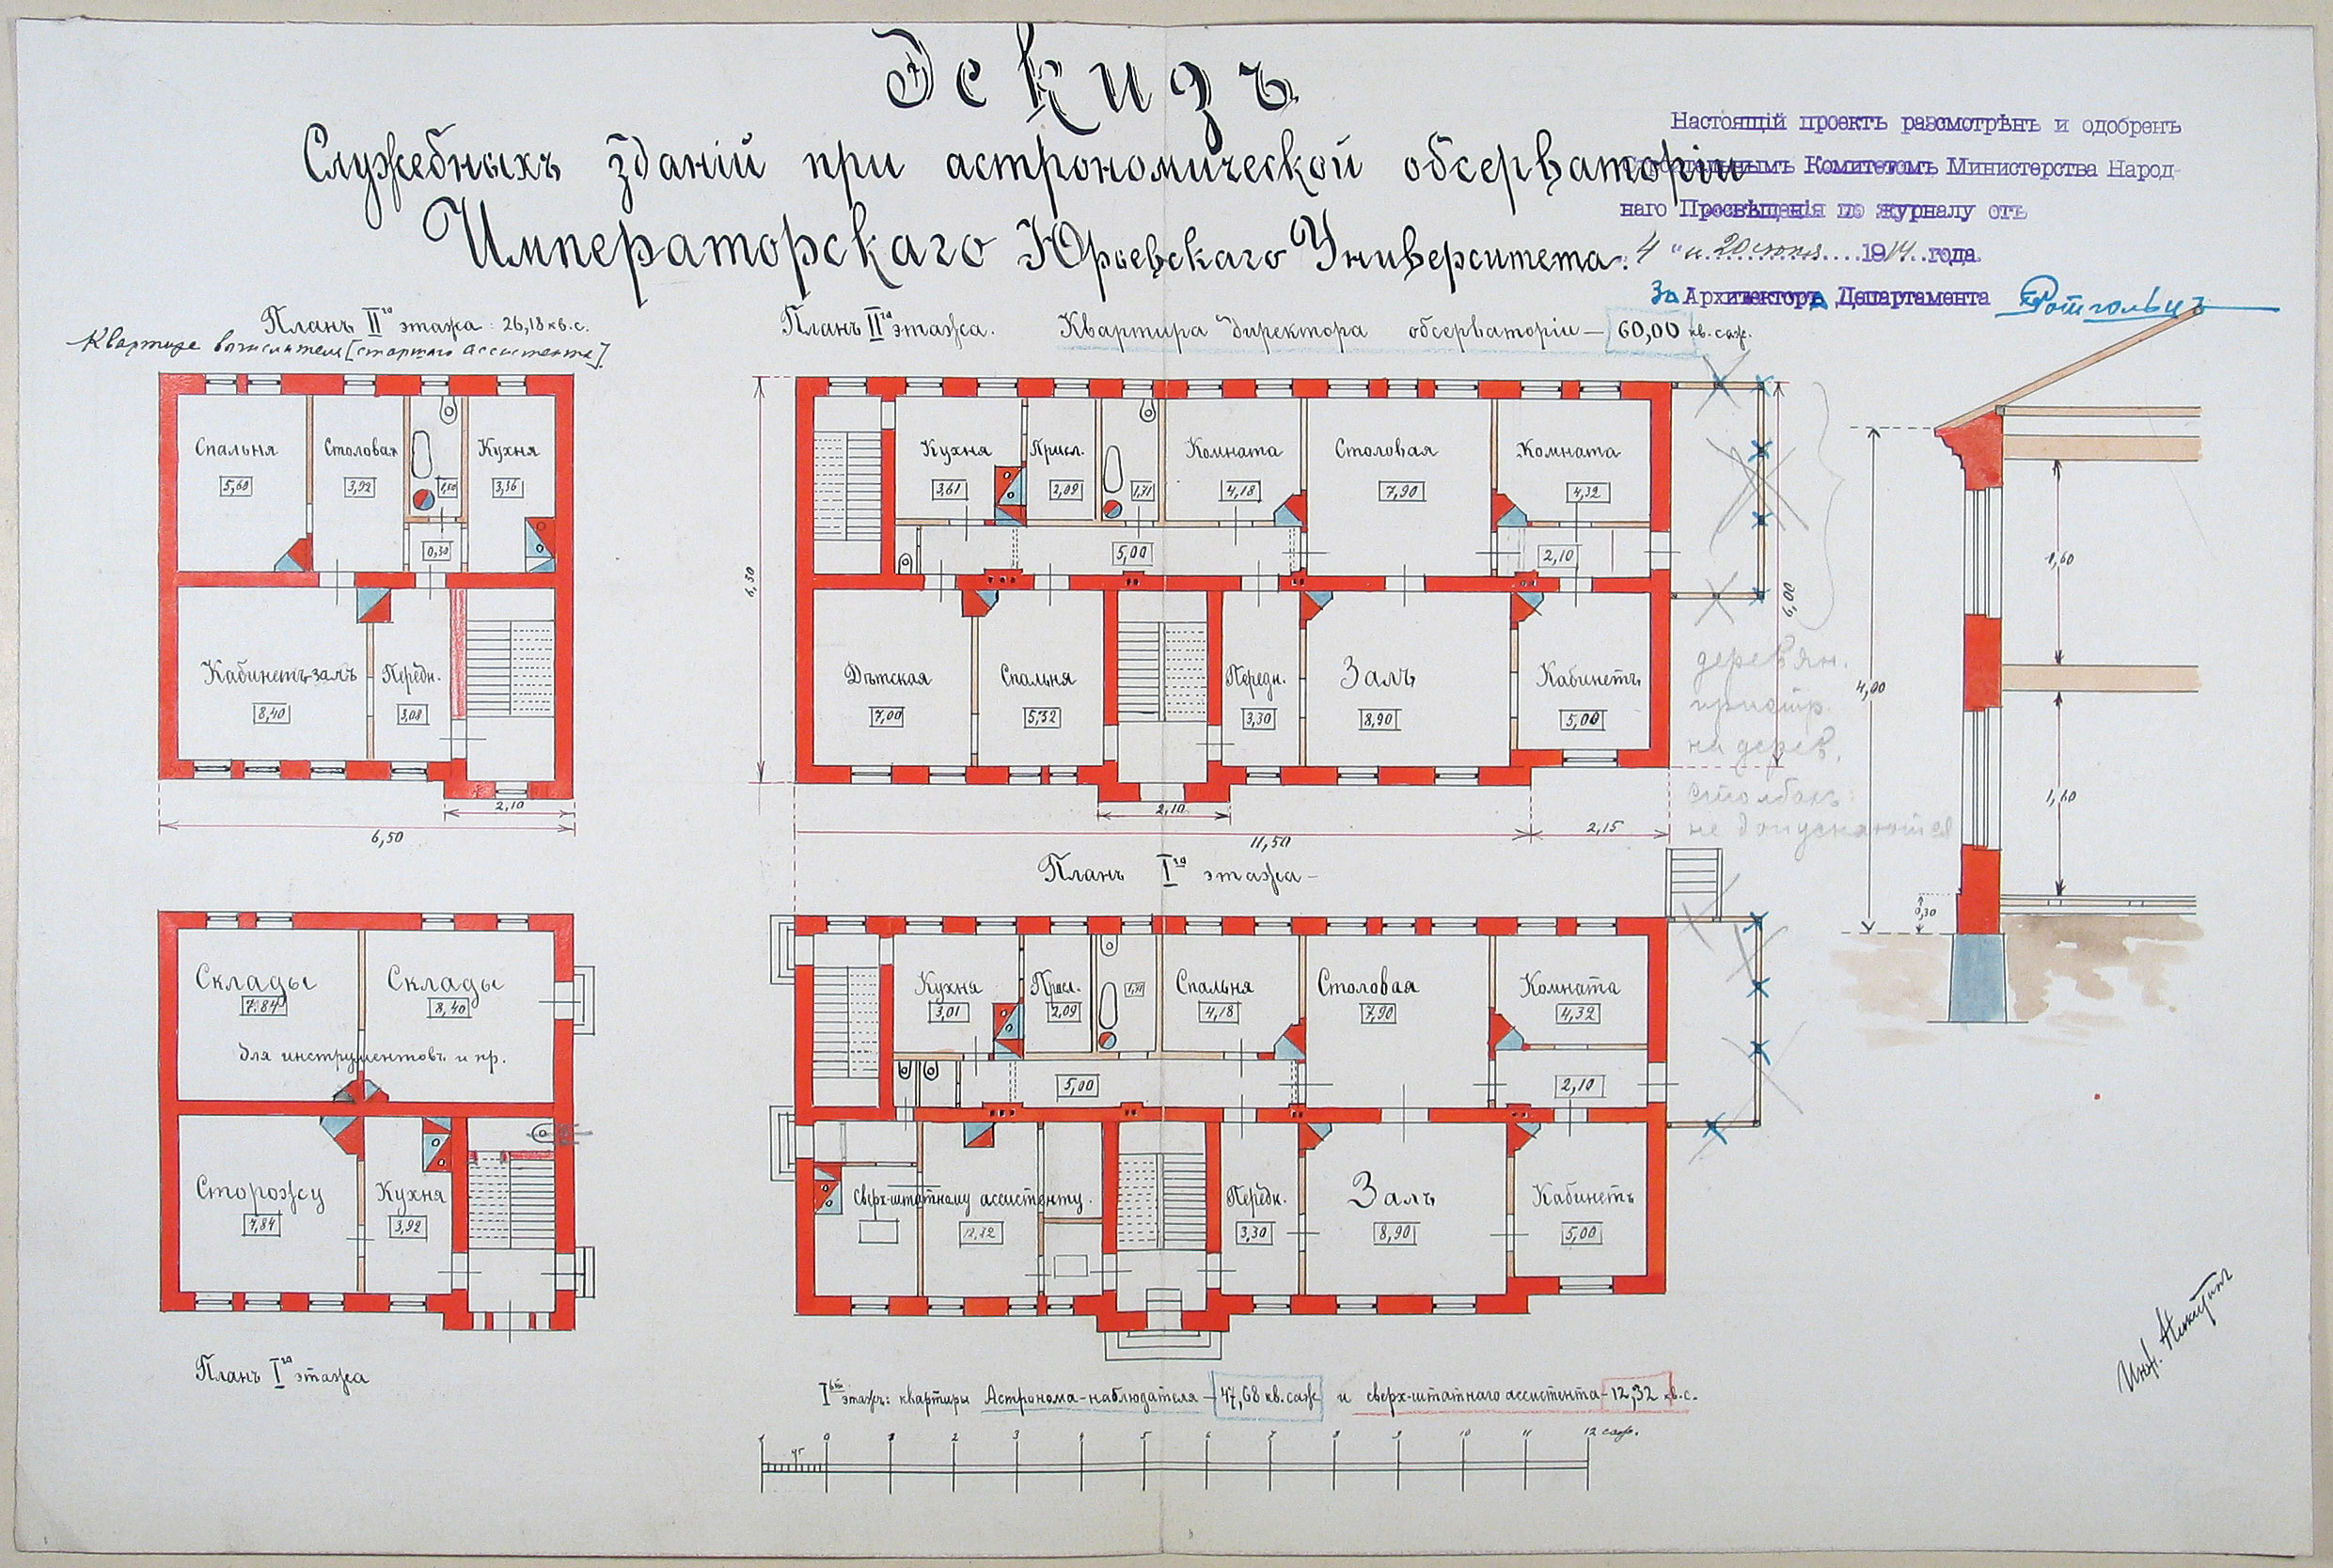 Эскизъ
Служебныхъ зданій при астрономической обсерваторіи
Императорскаго Юрьевскаго Университета.
Настоящій проектъ разсмотрѣнъ и одобренъ
Строительнымъ Комитетомъ Министерства Народ-
наго Просвѣщенія по журналу отъ
4 "и 20 іюня 1914 года
За Архитектора Департамента
Планъ II го этажа: 26,18 кв. с.
Квартира вычислителя [старшаго ассистента].
Спальня
5,60
Столовая
3,92
1,50
Кухня
3,36
0,30
Кабинетъ-залъ
8,40
Передн.
3,08
2,10
6,50
Планъ II го этажа. Квартира директора обсерваторіи — 60,00 кв. саж.
Кухня
3,61
Присл.
2,09
1,71
Комната
4,18
Столовая
7,90
Комната
4,32
5,00
2,10
6,30
6,00
Дѣтская
7,00
Спальня
5,32
Передн.
3,30
Залъ
8,90
Кабинетъ
5,00
2,10
11,50
2,15
деревян.
пристр.
на дерев.
столбахъ
не допускаются
4,00
1,60
1,60
0,30
Склады
7,84
Склады
8,40
для инструментовъ и пр.
Сторожу
7,84
Кухня
3,92
Планъ I го этажа
Планъ I го этажа —
Кухня
3,01
Присл.
2,09
1,71
Спальня
4,18
Столовая
7,90
Комната
4,32
5,00
2,10
Сверх-штатному ассистенту.
12,32
Передн.
3,30
Залъ
8,90
Кабинетъ
5,00
I ый этажъ: квартиры Астронома-наблюдателя — 47,68 кв. саж и сверх-штатнаго ассистента - 12,32 кв. с.
1 0 1 2 3 4 5 6 7 8 9 10 11 12 саж.
Инж.